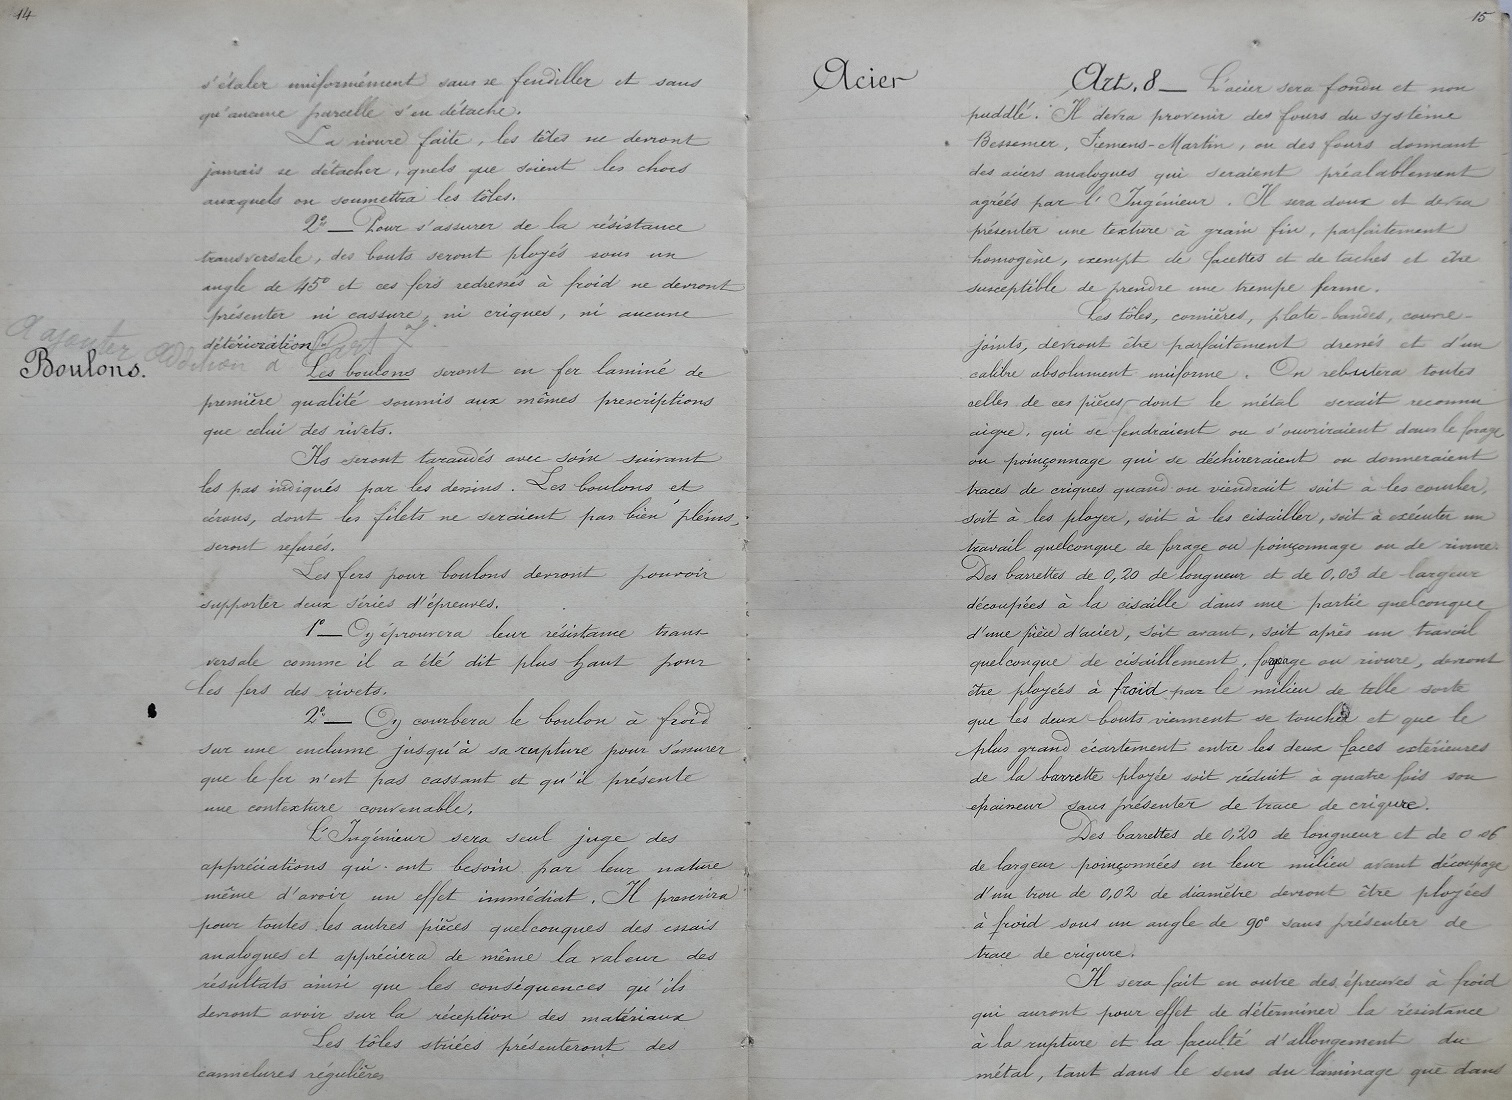 14
s'étaler uniformément sans se fendiller et sans
qu'aucune parcelle s'en détache.
La rivure faite, les têtes ne devront
jamais se détacher, quels que soient les chocs
auxquels on soumettra les tôles.
2º — Pour s'assurer de la résistance
transversale, des bouts seront ployés sous un
angle de 45º et ces fers redressés à froid ne devront
présenter ni cassure, ni criques, ni aucune
détérioration.
A ajouter Addition à l'art 7
Boulons.
Les boulons seront en fer laminé de
première qualité soumis aux mêmes prescriptions
que celui des rivets.
Ils seront taraudés avec soin suivant
les pas indiqués par les dessins. Les boulons et
écrous, dont les filets ne seraient pas bien pleins,
seront refusés.
Les fers pour boulons devront pouvoir
supporter deux séries d'épreuves.
1º — On éprouvera leur résistance trans-
versale comme il a été dit plus haut pour
les fers des rivets.
2º — On courbera le boulon à froid
sur une enclume jusqu'à sa rupture pour s'assurer
que le fer n'est pas cassant et qu'il présente
une contexture convenable.
L'Ingénieur sera seul juge des
appréciations qui ont besoin par leur nature
même d'avoir un effet immédiat. Il prescrira
pour toutes les autres pièces quelconques des essais
analogues et appréciera de même la valeur des
résultats ainsi que les conséquences qu'ils
devront avoir sur la réception des matériaux
Les tôles striées présenteront des
cannelures régulières
15
Acier
Art. 8 — L'acier sera fondu et non
puddlé. Il devra provenir des fours du système
Bessemer, Siemens-Martin, ou des fours donnant
des aciers analogues qui seraient préalablement
agréés par l'Ingénieur. Il sera doux et devra
présenter une texture à grain fin, parfaitement
homogène, exempt de facettes et de taches et être
susceptible de prendre une trempe ferme.
Les tôles, cornières, plate-bandes, couvre-
joints, devront être parfaitement dressés et d'un
calibre absolument uniforme. On rebutera toutes
celles de ces pièces dont le métal serait reconnu
aigre, qui se fendraient ou s'ouvriraient dans le forage
ou poinçonnage qui se déchireraient ou donneraient
traces de criques quand on viendrait soit à les courber,
soit à les ployer, soit à les cisailler, soit à exécuter un
travail quelconque de forage ou poinçonnage ou de rivure.
Des barrettes de 0,20 de longueur et de 0,03 de largeur
découpées à la cisaille dans une partie quelconque
d'une pièce d'acier, soit avant, soit après un travail
quelconque de cisaillement, forage ou rivure, devront
être ployées à froid par le milieu de telle sorte
que les deux bouts viennent se toucher et que le
plus grand écartement entre les deux faces extérieures
de la barrette ployée soit réduit à quatre fois son
épaisseur sans présenter de trace de criqure.
Des barrettes de 0,20 de longueur et de 0,06
de largeur poinçonnées en leur milieu avant découpage
d'un trou de 0,02 de diamètre devront être ployées
à froid sous un angle de 90º sans présenter de
trace de criqure.
Il sera fait en outre des épreuves à froid
qui auront pour effet de déterminer la résistance
à la rupture et la faculté d'allongement du
métal, tant dans le sens du laminage que dans